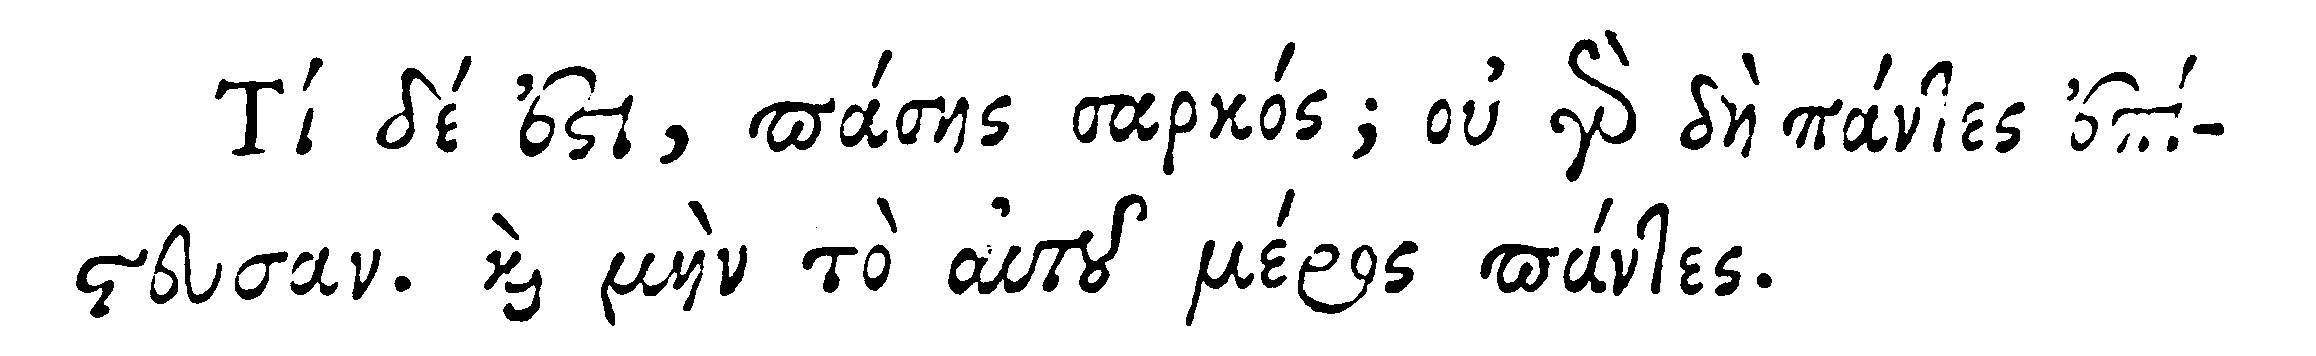 Τί δέ ἐστι, πάσης σαρκός; οὐ γὰρ δὴ πάντες ἐπί-
στευσαν. καὶ μὴν τὸ αὐτοῦ μέρος πάντες.